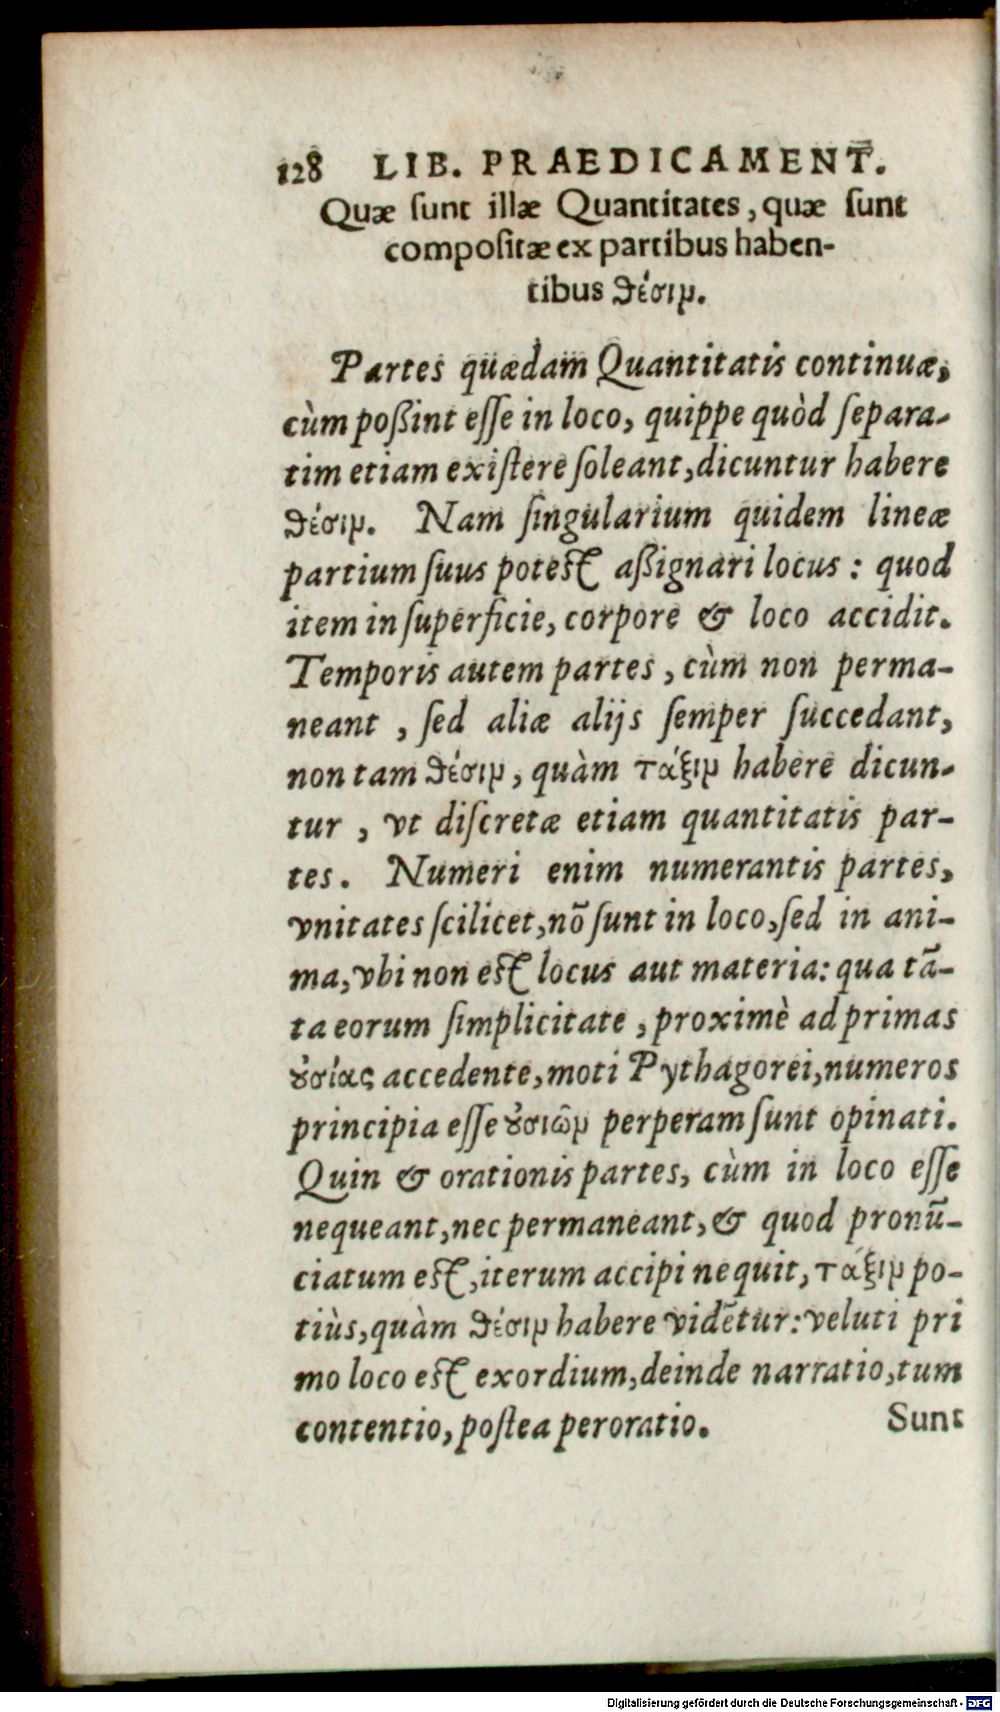 128 LIB. PRAEDICAMENT.
Quæ ſunt illæ Quantitates, quæ ſunt
compoſitæ ex partibus haben-
tibus θέσιμ.
Partes quædam Quantitatis continuæ,
cùm poßint eſſe in loco, quippe quòd ſepara-
tim etiam exiſtere ſoleant, dicuntur habere
θέσιμ. Nam ſingularium quidem lineæ
partium ſuus poteſt aßignari locus: quod
item in ſuperficie, corpore & loco accidit.
Temporis autem partes, cùm non perma-
neant, ſed aliæ alijs ſemper ſuccedant,
non tam θέσιμ, quàm τάξιμ habere dicun-
tur, vt diſcretæ etiam quantitatis par-
tes. Numeri enim numerantis partes,
vnitates ſcilicet, nõ ſunt in loco, ſed in ani-
ma, vbi non eſt locus aut materia: qua tã-
ta eorum ſimplicitate, proximè ad primas
ȣσίας accedente, moti Pythagorei, numeros
principia eſſe ȣσιῶμ perperam ſunt opinati.
Quin & orationis partes, cùm in loco eſſe
nequeant, nec permaneant, & quod pronũ-
ciatum eſt, iterum accipi nequit, τάξιμ po-
tiùs, quàm θέσιμ habere vidẽtur: veluti pri
mo loco eſt exordium, deinde narratio, tum
contentio, poſtea peroratio.
Sunt
Digitalisierung gefördert durch die Deutsche Forschungsgemeinschaft - DFG